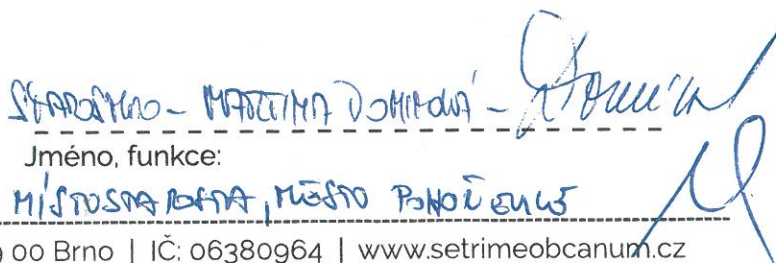 MARTINA DOMINOVÁ -
Jméno, funkce:
MÍSTOSTAROSTA, MĚSTO POHOŘELICE
9 00 Brno | IČ: 06380964 | www.setrimeobcanum.cz